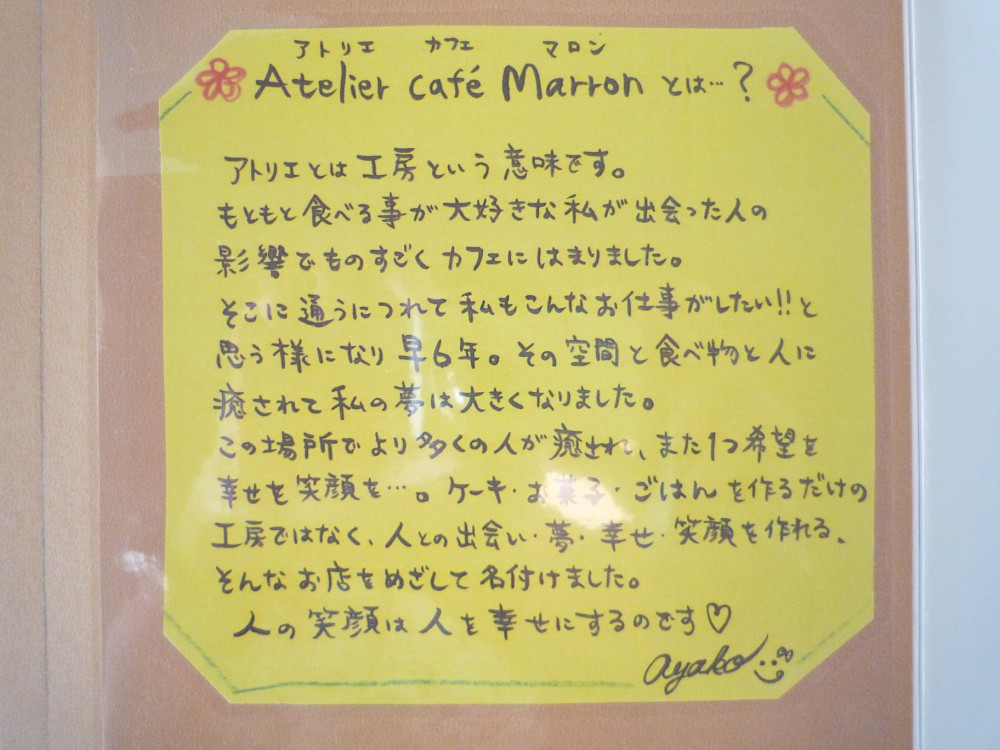 アトリエ カフェ マロン
Atelier café Marron とは…?
アトリエとは工房という意味です。
もともと食べる事が大好きな私が出会った人の
影響でものすごくカフェにはまりました。
そこに通うにつれて私もこんなお仕事がしたい!!と
思う様になり早6年。その空間と食べ物と人に
癒されて私の夢は大きくなりました。
この場所でより多くの人が癒され、また1つ希望を
幸せを笑顔を…。ケーキ・お菓子・ごはんを作るだけの
工房ではなく、人との出会い・夢・幸せ・笑顔を作れる、
そんなお店をめざして名付けました。
人の笑顔は人を幸せにするのです♡
ayako